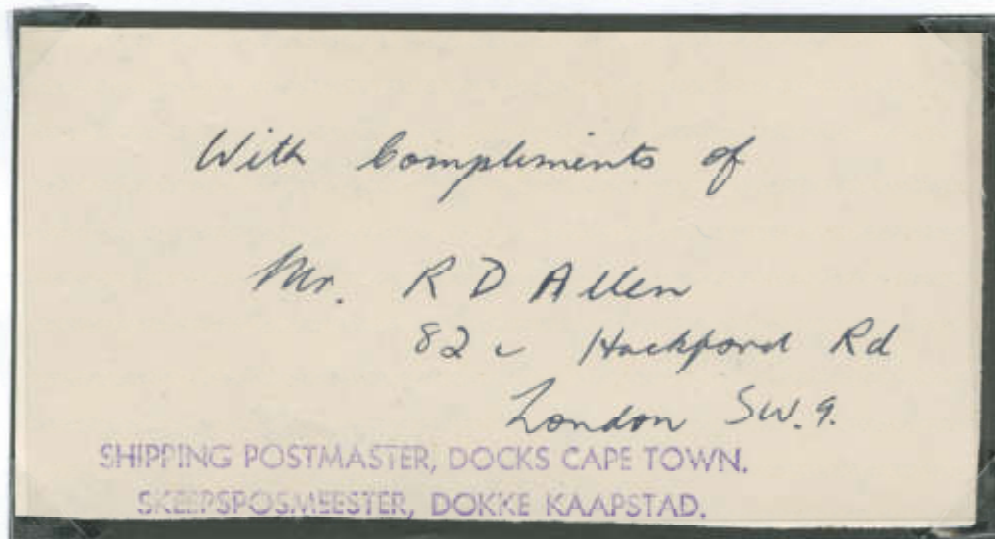 With Compliments of
Mr. R D Allen
82 c Hackford Rd
London SW.9.
SHIPPING POSTMASTER, DOCKS CAPE TOWN.
SKEEPSPOSMEESTER, DOKKE KAAPSTAD.